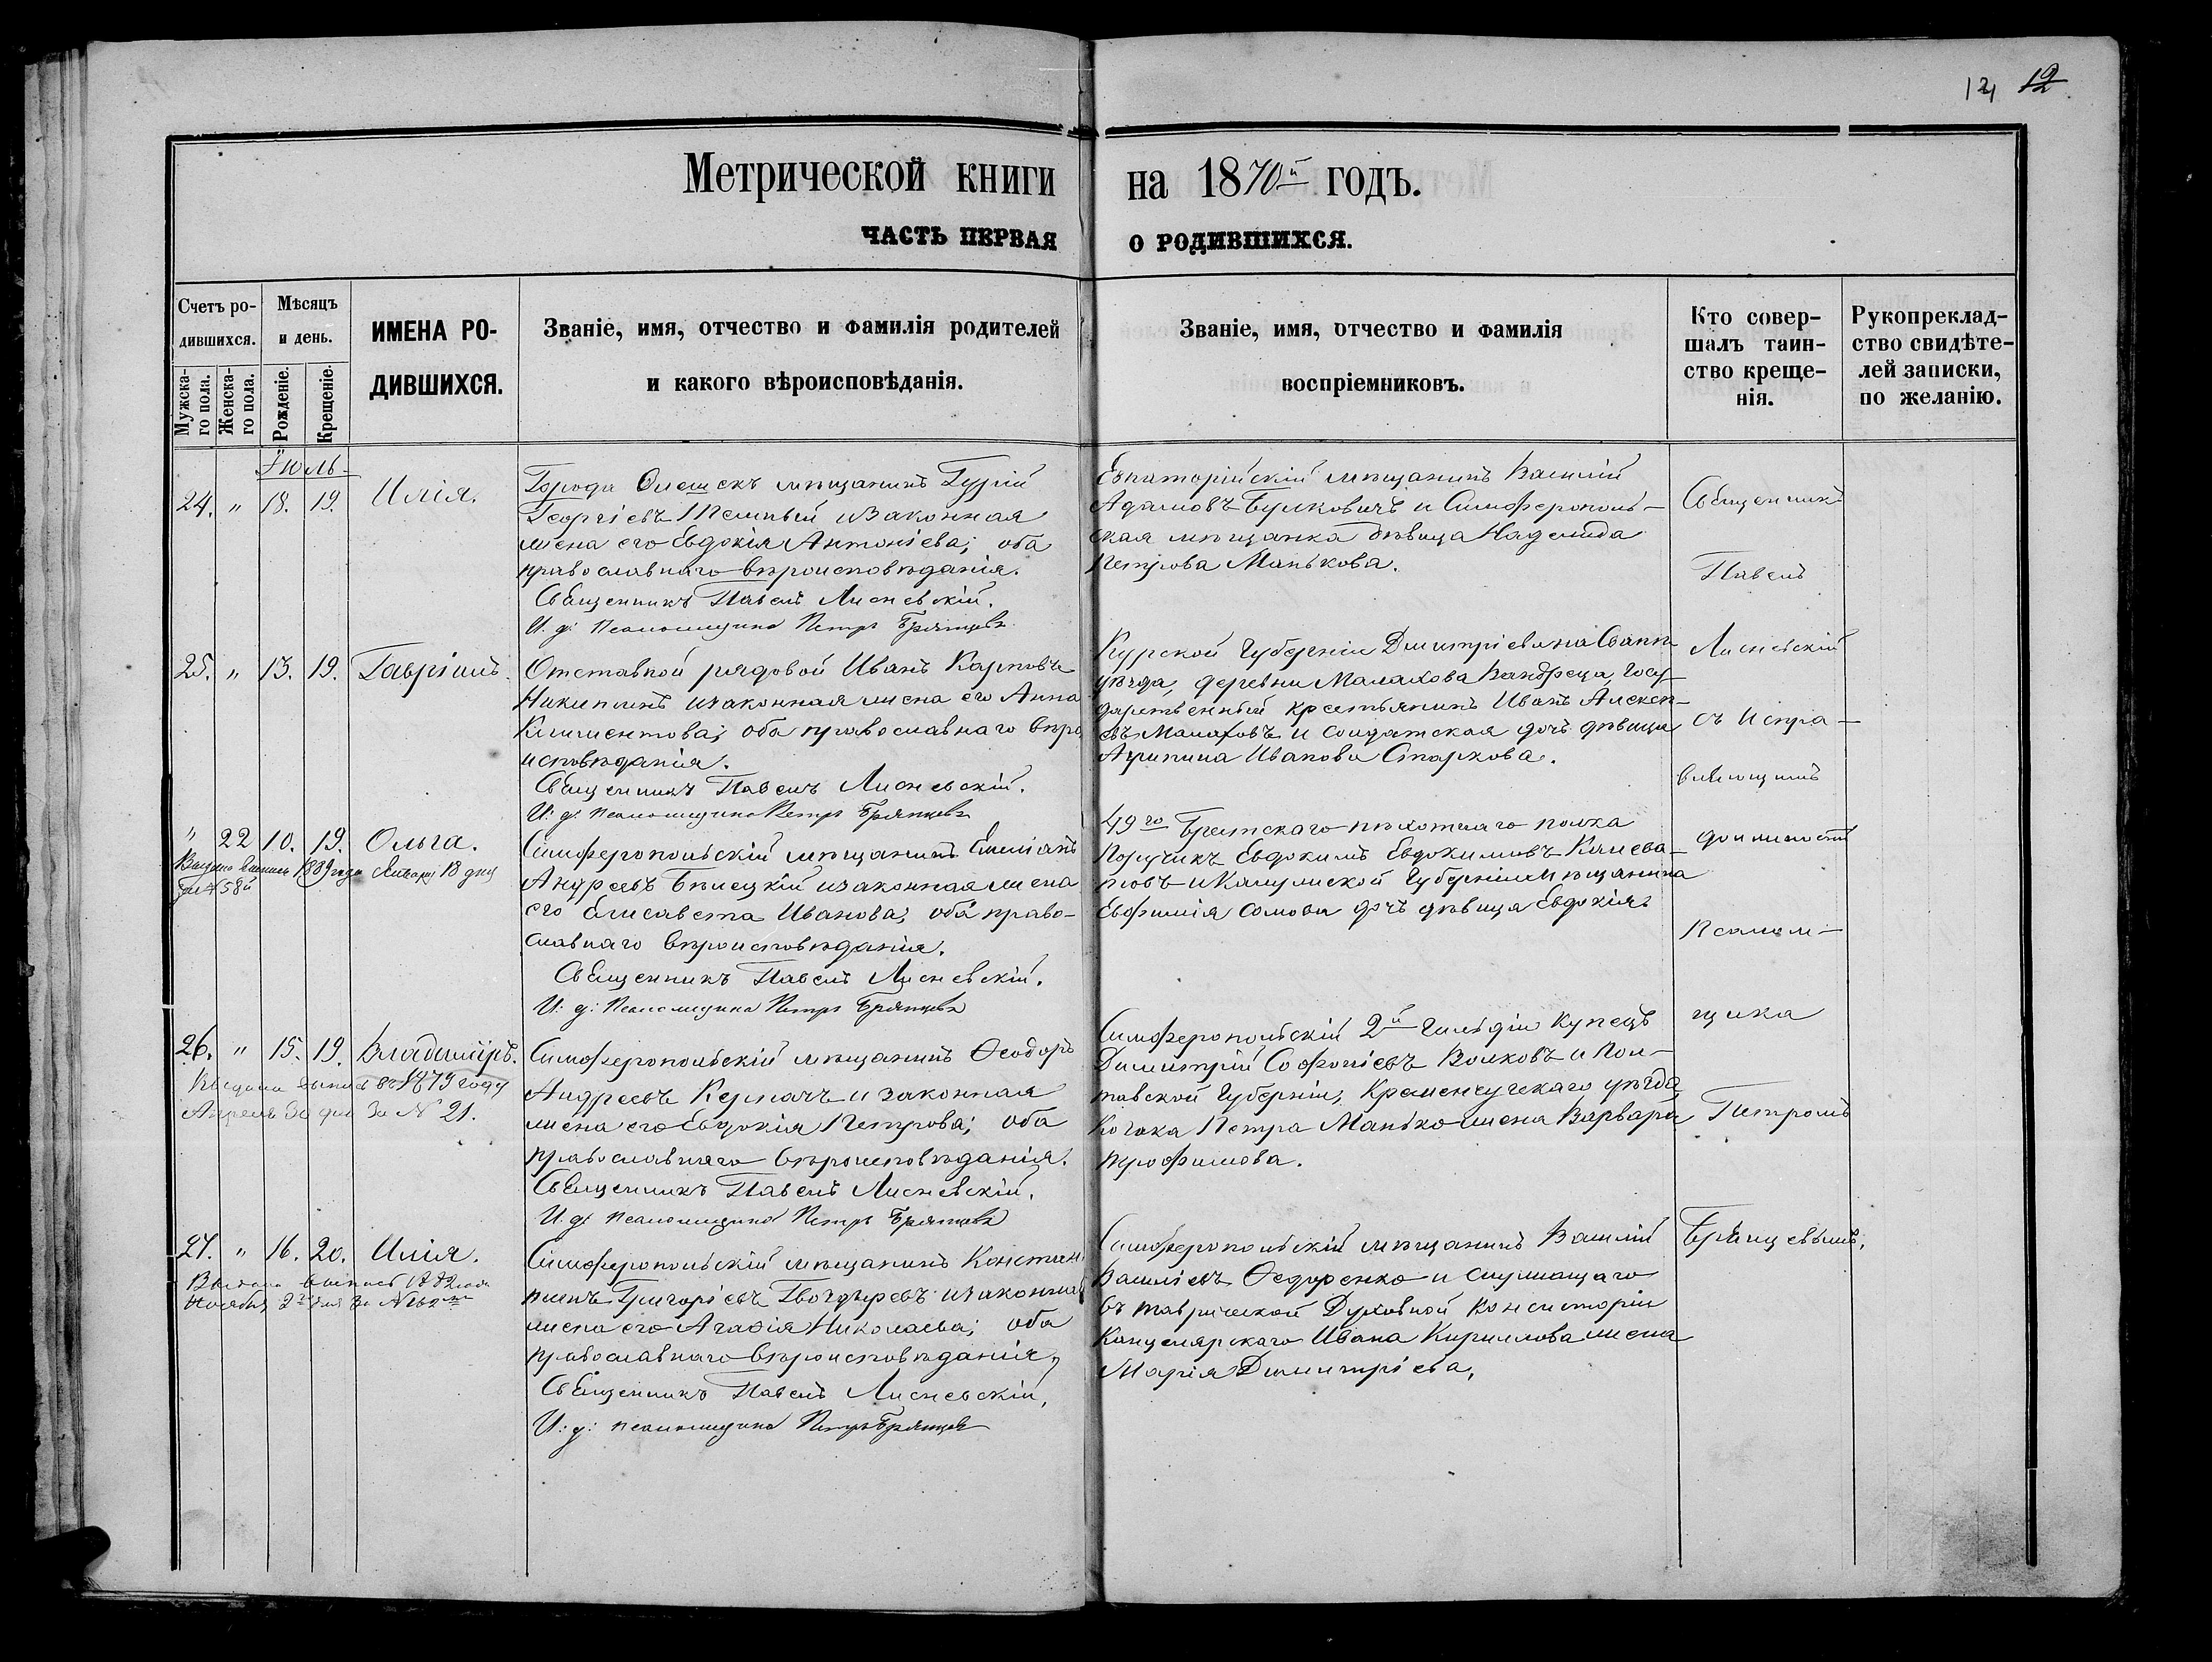 12
Метрической книги на 1870й годъ.
ЧАСТЬ ПЕРВАЯ О РОДИВШИХСЯ.
Счетъ родившихся.
Мужскаго пола.
Женскаго пола.
Мѣсяцъ и день.
Рожденіе.
Крещеніе.
ИМЕНА РО-
ДИВШИХСЯ.
Званіе, имя, отчество и фамилія родителей
и какого вѣроисповѣданія.
Званіе, имя, отчество и фамилія
воспріемниковъ.
Кто совер-
шалъ таин-
ство креще-
нія.
Рукопреклад-
ство свидѣте-
лей записки,
по желанію.
Іюль
24. " 18. 19. Илія.
Города Олешекъ мѣщанинъ Гурій
Георгіевъ и законная
жена его Евдокія Антоніева; оба
православнаго вѣроисповѣданія.
Священникъ Павелъ Лисневскій.
И. д. псаломщика Петръ Брянцевъ
Евпаторійскій мѣщанинъ Василій
Адамовъ Булковичъ и Симферополь-
ская мѣщанка дѣвица Надежда
Петрова Манькова.
25. " 13. 19. Гавріилъ.
Отставной рядовой Иванъ Карповъ
Никитинъ и законная жена его Анна
Климентова; оба православнаго вѣро
исповѣданія.
Священникъ Павелъ Лисневскій.
И. д. псаломщика Петръ Брянцевъ
Курской Губерніи Димитріева на Свапѣ
уѣзда, деревни Малахова Госу-
дарственный крестьянинъ Иванъ Алексѣ-
евъ Малаховъ и солдатская дочь дѣвица
Агрипина Иванова Старкова.
" 22 10. 19. Ольга.
Выдана выпись 1889 года Января 18 дня
за № 58й
Симферопольскій мѣщанинъ Емеліанъ
Андреевъ Бѣлецкій и законная жена
его Елисавета Иванова; оба право-
славнаго вѣроисповѣданія.
Священникъ Павелъ Лисневскій.
И. д: псаломщика Петръ Брянцевъ
49го Брестскаго пѣхотнаго полка
Поручикъ Евдокимъ Евдокимовъ
и Калужской Губерніи мѣщанина
Евфимія Сомова дочь дѣвица Евдокія.
26. " 15. 19. Владиміръ.
Выдана выпись въ 1879 году
Апреля 30 дня за № 21.
Симферопольскій мѣщанинъ Ѳеодоръ
Андреевъ и законная
жена его Евдокія Петрова; оба
православнаго вѣроисповѣданія.
Священникъ Павелъ Лисневскій.
И. д: псаломщика Петръ Брянцевъ
Симферопольскій 2й гильдіи купецъ
Димитрій Софоніевъ Волковъ и Пол-
тавской Губерніи, Кременчугскаго уѣзда,
козака Петра Манько жена Варвара
Трофимова.
27. " 16. 20. Илія.
Выдана выпись 1882 года
Ноября 2го дня за №
Симферопольскій мѣщанинъ Констан
тинъ Григоріевъ Гвоздаревъ и законная
жена его Агафія Николаева; оба
православнаго вѣроисповѣданія,
Священникъ Павелъ Лисневскій,
И: д: псаломщика Петръ Брянцевъ
Симферопольскій мѣщанинъ Василій
Василіевъ Ѳедоренко и служащаго
въ таврической Духовной Консисторіи
Канцелярскаго Ивана Кириллова жена
Марія Димитріева,
Священникъ
Павелъ
Лисневскій
съ исправ-
вляющимъ
должность
псалом-
щика
Петромъ
Брянцевымъ,